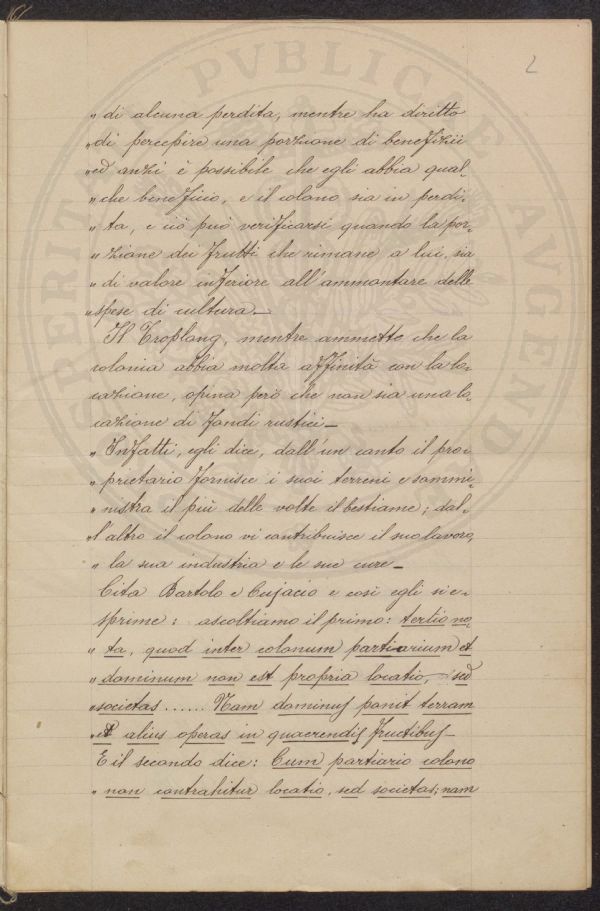 2
PVBLICAE
PROSPERITATI
AVGENDAE
„ di alcuna perdita, mentre ha diritto
„ di percepire una porzione di benefizii
„ ed anzi è possibile che egli abbia qual-
„ che beneficio, e il colono sia in perdi-
„ ta, e ciò può verificarsi quando la por-
„ zione dei frutti che rimane a lui, sia
„ di valore inferiore all'ammontare delle
„ spese di cultura_
Il Troplong, mentre ammette che la
colonia abbia molta affinità con la lo-
cazione, opina però che non sia una lo-
cazione di fondi rustici_
„ Infatti, egli dice, dall'un canto il pro-
„ prietario fornisce i suoi terreni e sommi-
„ nistra il più delle volte il bestiame; dal-
„ l'altro il colono vi contribuisce il suo lavoro,
„ la sua industria e le sue cure_
Cita Bartolo e Cujacio e così egli si e-
sprime: ascoltiamo il primo: tertio no-
„ ta, quod inter colonum partiarium et
„ dominum non est propria locatio, sed
„ societas....... Nam dominus ponit terram
„ et alius operas in quaerendis fructibus_
E il secondo dice: Cum partiario colono
„ non contrahitur locatio, sed societas; nam